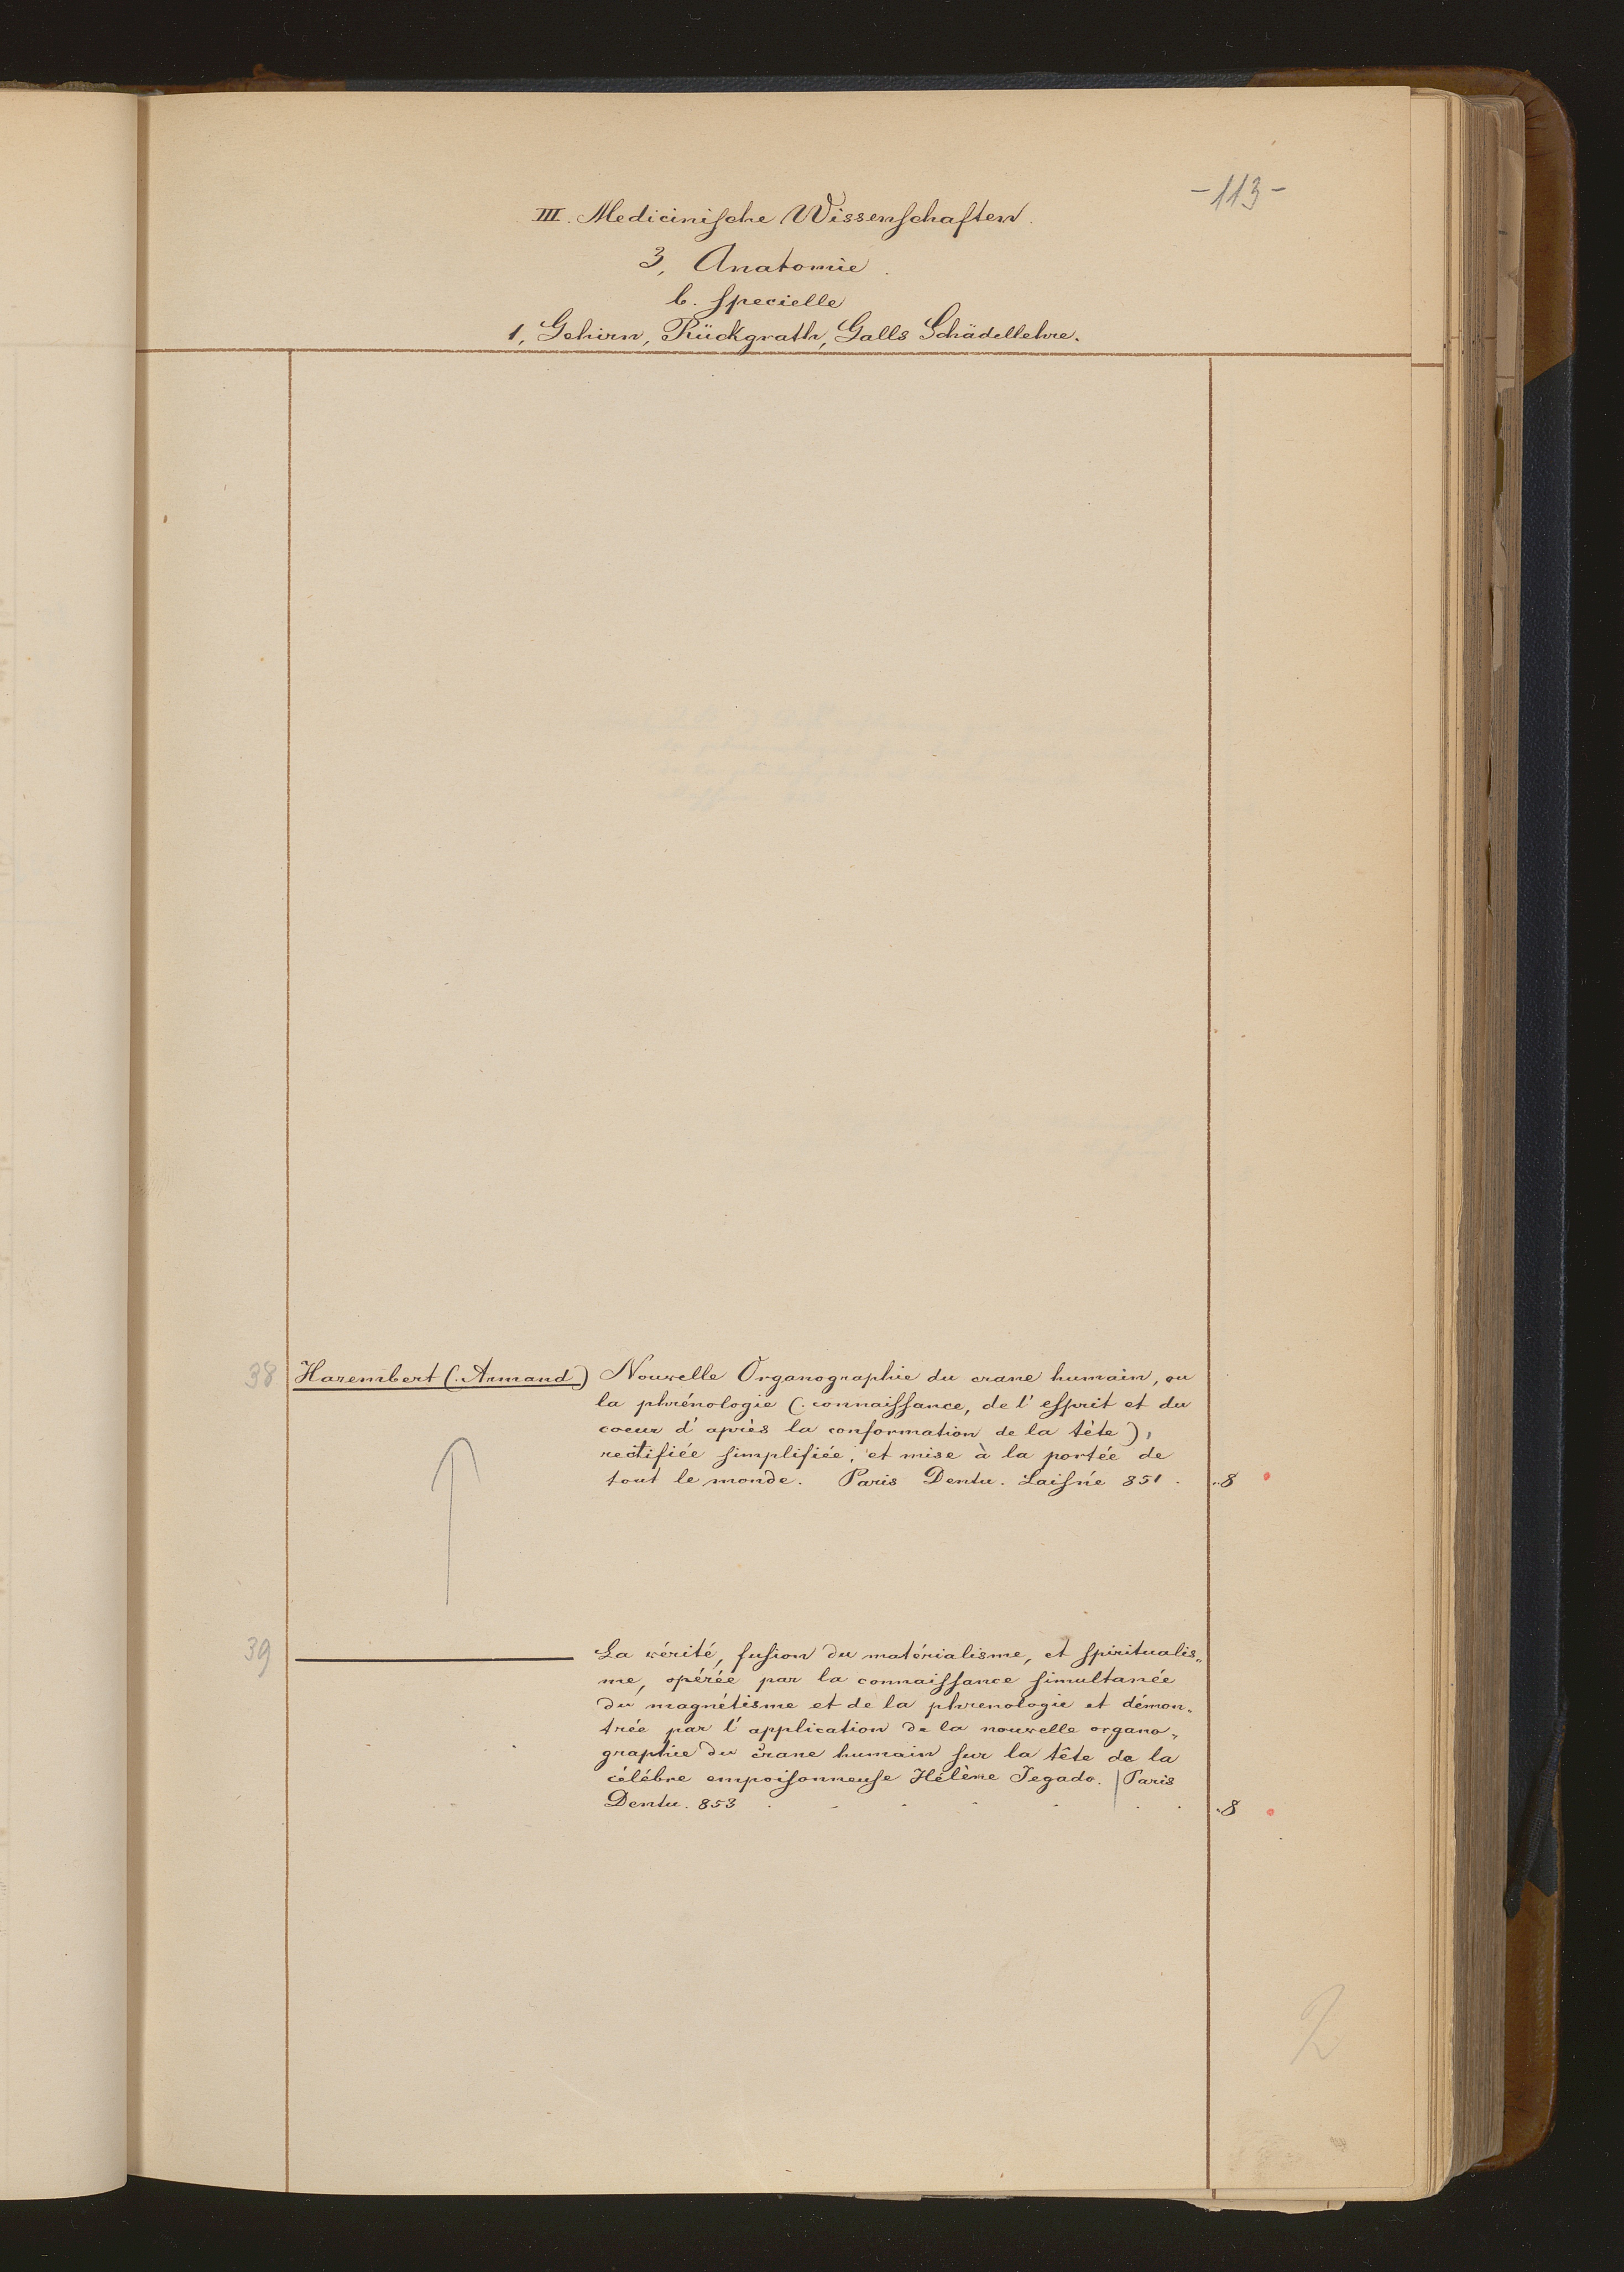 -113-
III. Medicinische Wissenschaften.
3, Anatomie.
b. specielle
1, Gehirn, Rückgrath, Galls Schädellehre.
38 Harembert (. Armand) Nouvelle Organographie du crane humain, ou
la phrénologie (. connaissance, de l'esprit et du
coeur d'après la conformation de la tète),
rectifiée simplifiée, et mise à la portée de
tout le monde. Paris Dentu. Laisné 851. „8
39 La vérité, fusion du matérialisme, et spiritualis„
me, opérée par la connaissance simultanée
du magnétisme et de la phrenologie et démon„
trée par l'application de la nouvelle organo„
graphie du crane humain sur la tête de la
célébre empoisonneuse Hélène Jegado. | Paris
Dentu. 853 . . . . . . . „8
2